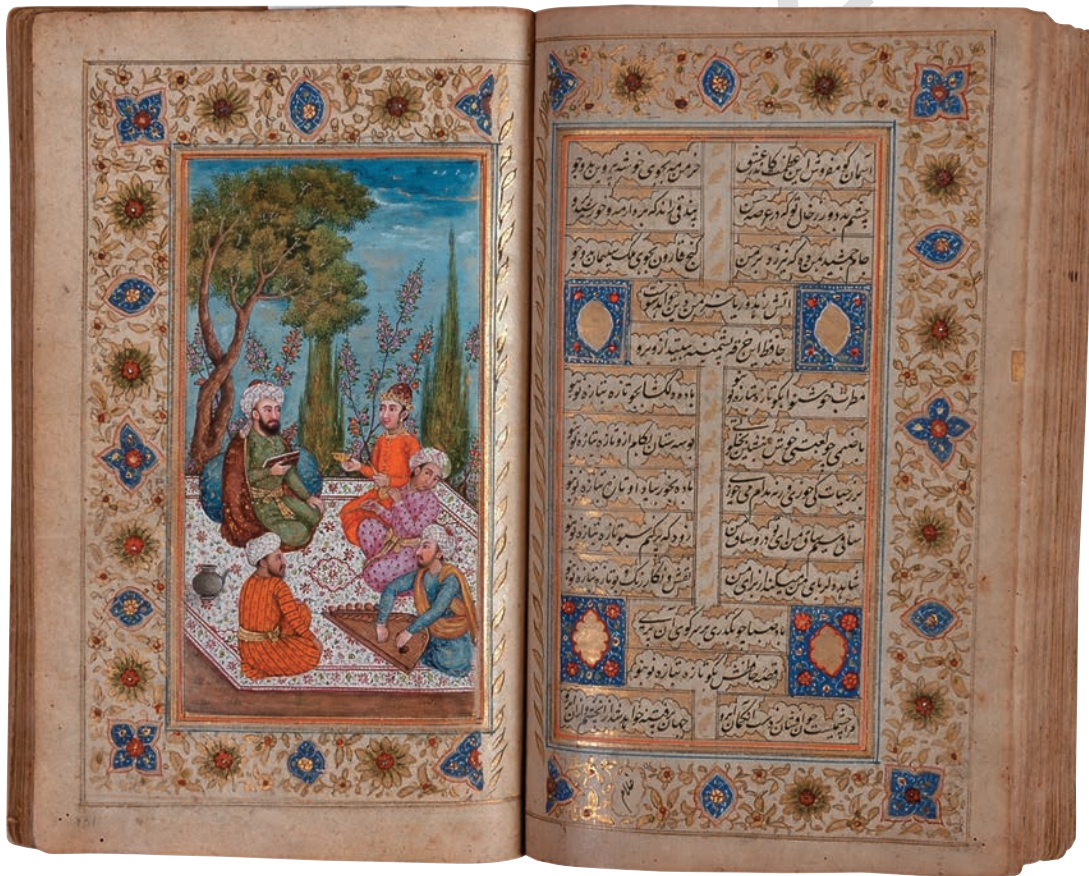 آسمان کو مفروش این عظمت کاندر عشق خرمن مه بجوی خوشه پروین بدو جو
چشم بد دور ز خال تو که در عرصه حسن بیدقی راند که برد از مه و خورشید گرو
جام جمشید بمن ده که نیرزد بر من کنج قارون بجوی ملک سلیمان دو جو
آتش زهد و ریا خرمن دین خواهد سوخت
حافظ این خرقه پشمینه بینداز و برو
مطرب خوشنوا بکو تازه بتازه نو بنو باده دلکشا بجو تازه بتازه نو بنو
با صنمی چو لعبتی خوش بنشین بخلوتی بوسه ستان بکام ازو تازه بتازه نو بنو
بر ز حیات کی خوری کر نه مدام می خوری باده بخور بیاد او تازه بتازه نو بنو
ساقی سیم ساق من زود که پر کنم سبو تازه بتازه نو بنو
شاهد دلربای من میکند از برای من نقش و نکار و رنک و بو تازه بتازه نو بنو
باد صبا چو بکذری بر سر کوی آن پری
قصه حافظش بکو تازه بتازه نو بنو
مرا چشمیست خون افشان ز دست آن کمان ابرو جهان پر فتنه خواهد شد از آن چشم و از آن ابرو
غلام